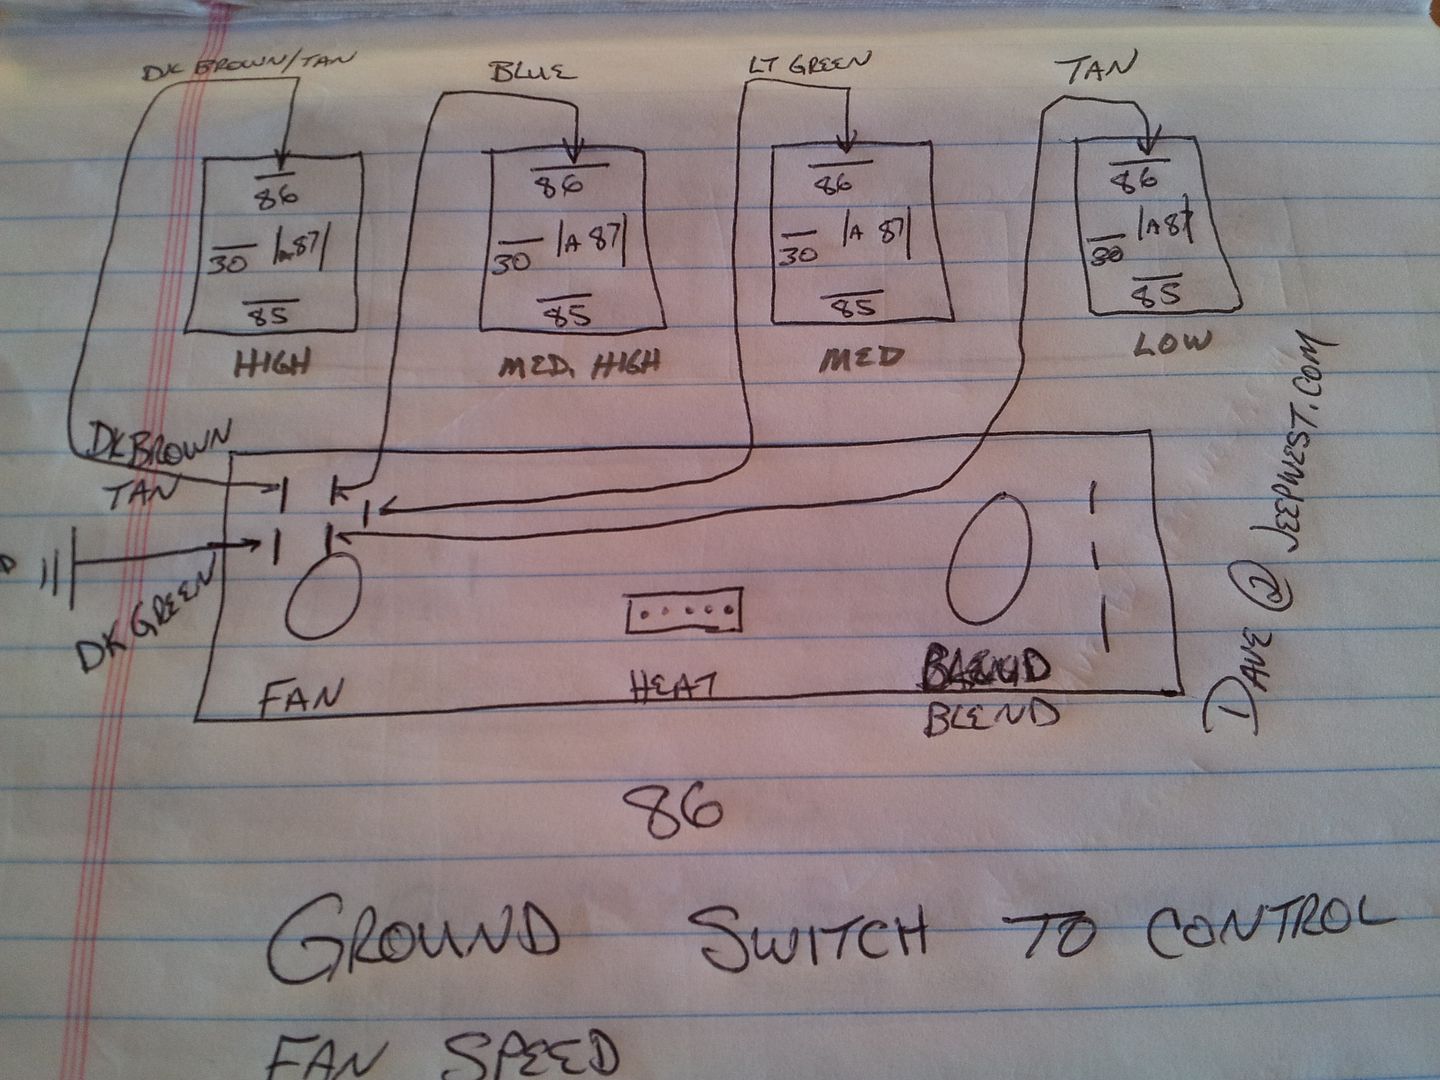 DK BROWN/TAN BLUE LT GREEN TAN
86 86 86 86
30 87 30 A 87 30 A 87 30 A 87
85 85 85 85
HIGH MED. HIGH MED LOW
DK BROWN
TAN
DK GREEN
FAN HEAT BLEND
DAVE @ JEEPWEST.COM
86
GROUND SWITCH TO CONTROL
FAN SPEED